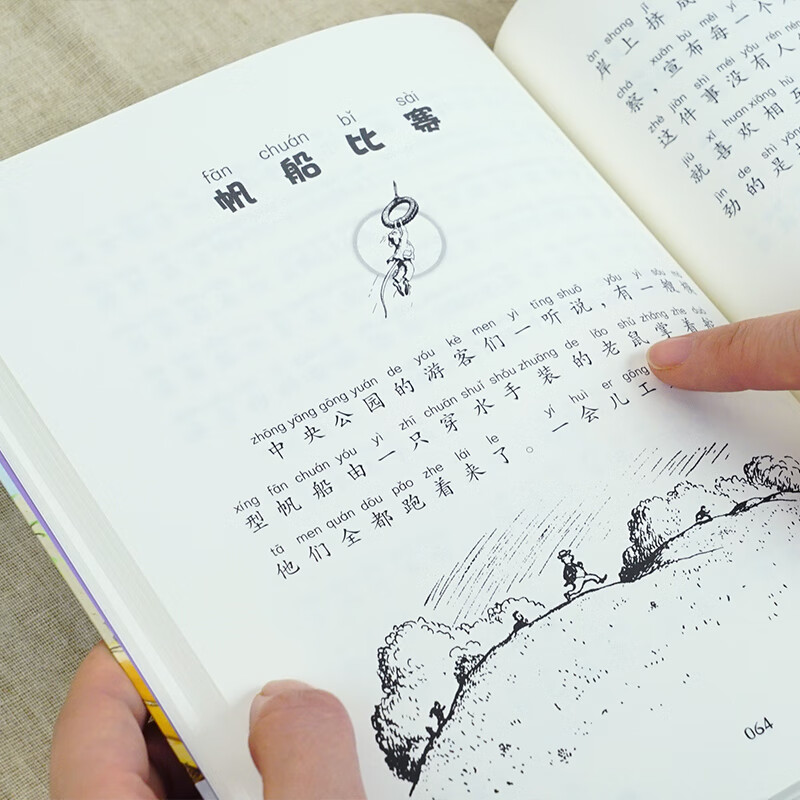 fān chuán bǐ sài
帆船比赛
zhōng yāng gōng yuán de yóu kè men yì tīng shuō yǒu yì sōu
中央公园的游客们一听说，有一艘模
xíng fān chuán yóu yì zhī chuān shuǐ shǒu zhuāng de lǎo shǔ zhǎng zhe duò
型帆船由一只穿水手装的老鼠掌着舵
tā men quán dōu pǎo zhe lái le yí huì er gōng
他们全都跑着来了。一会儿工
064
àn shang jǐ
岸上挤成
chá xuān bù měi yí
察，宣布每一个
zhè jiàn shì méi yǒu rén nén
这件事没有人
jiù xǐ huan xiāng hù
就喜欢相互
jìn de shì yóng
劲的是